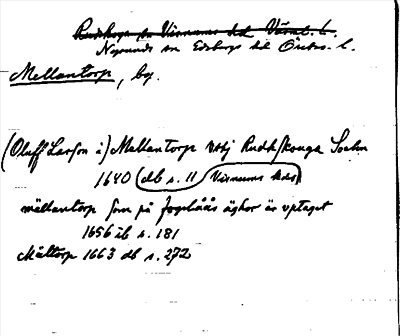 Rudskoga sn Visnums hd Värml. l.
Nysunds sn Edsbergs hd Örebro l.
Mellantorp, by.
(Oluff Larson i) Mellantorp vthj Rudhskouga Sochn
1640 (db s. 11 Visnums hds)
mällantorp som på fogelåås äghor är vptaget
1656 ib s. 181
Mältorp 1663 db s. 272